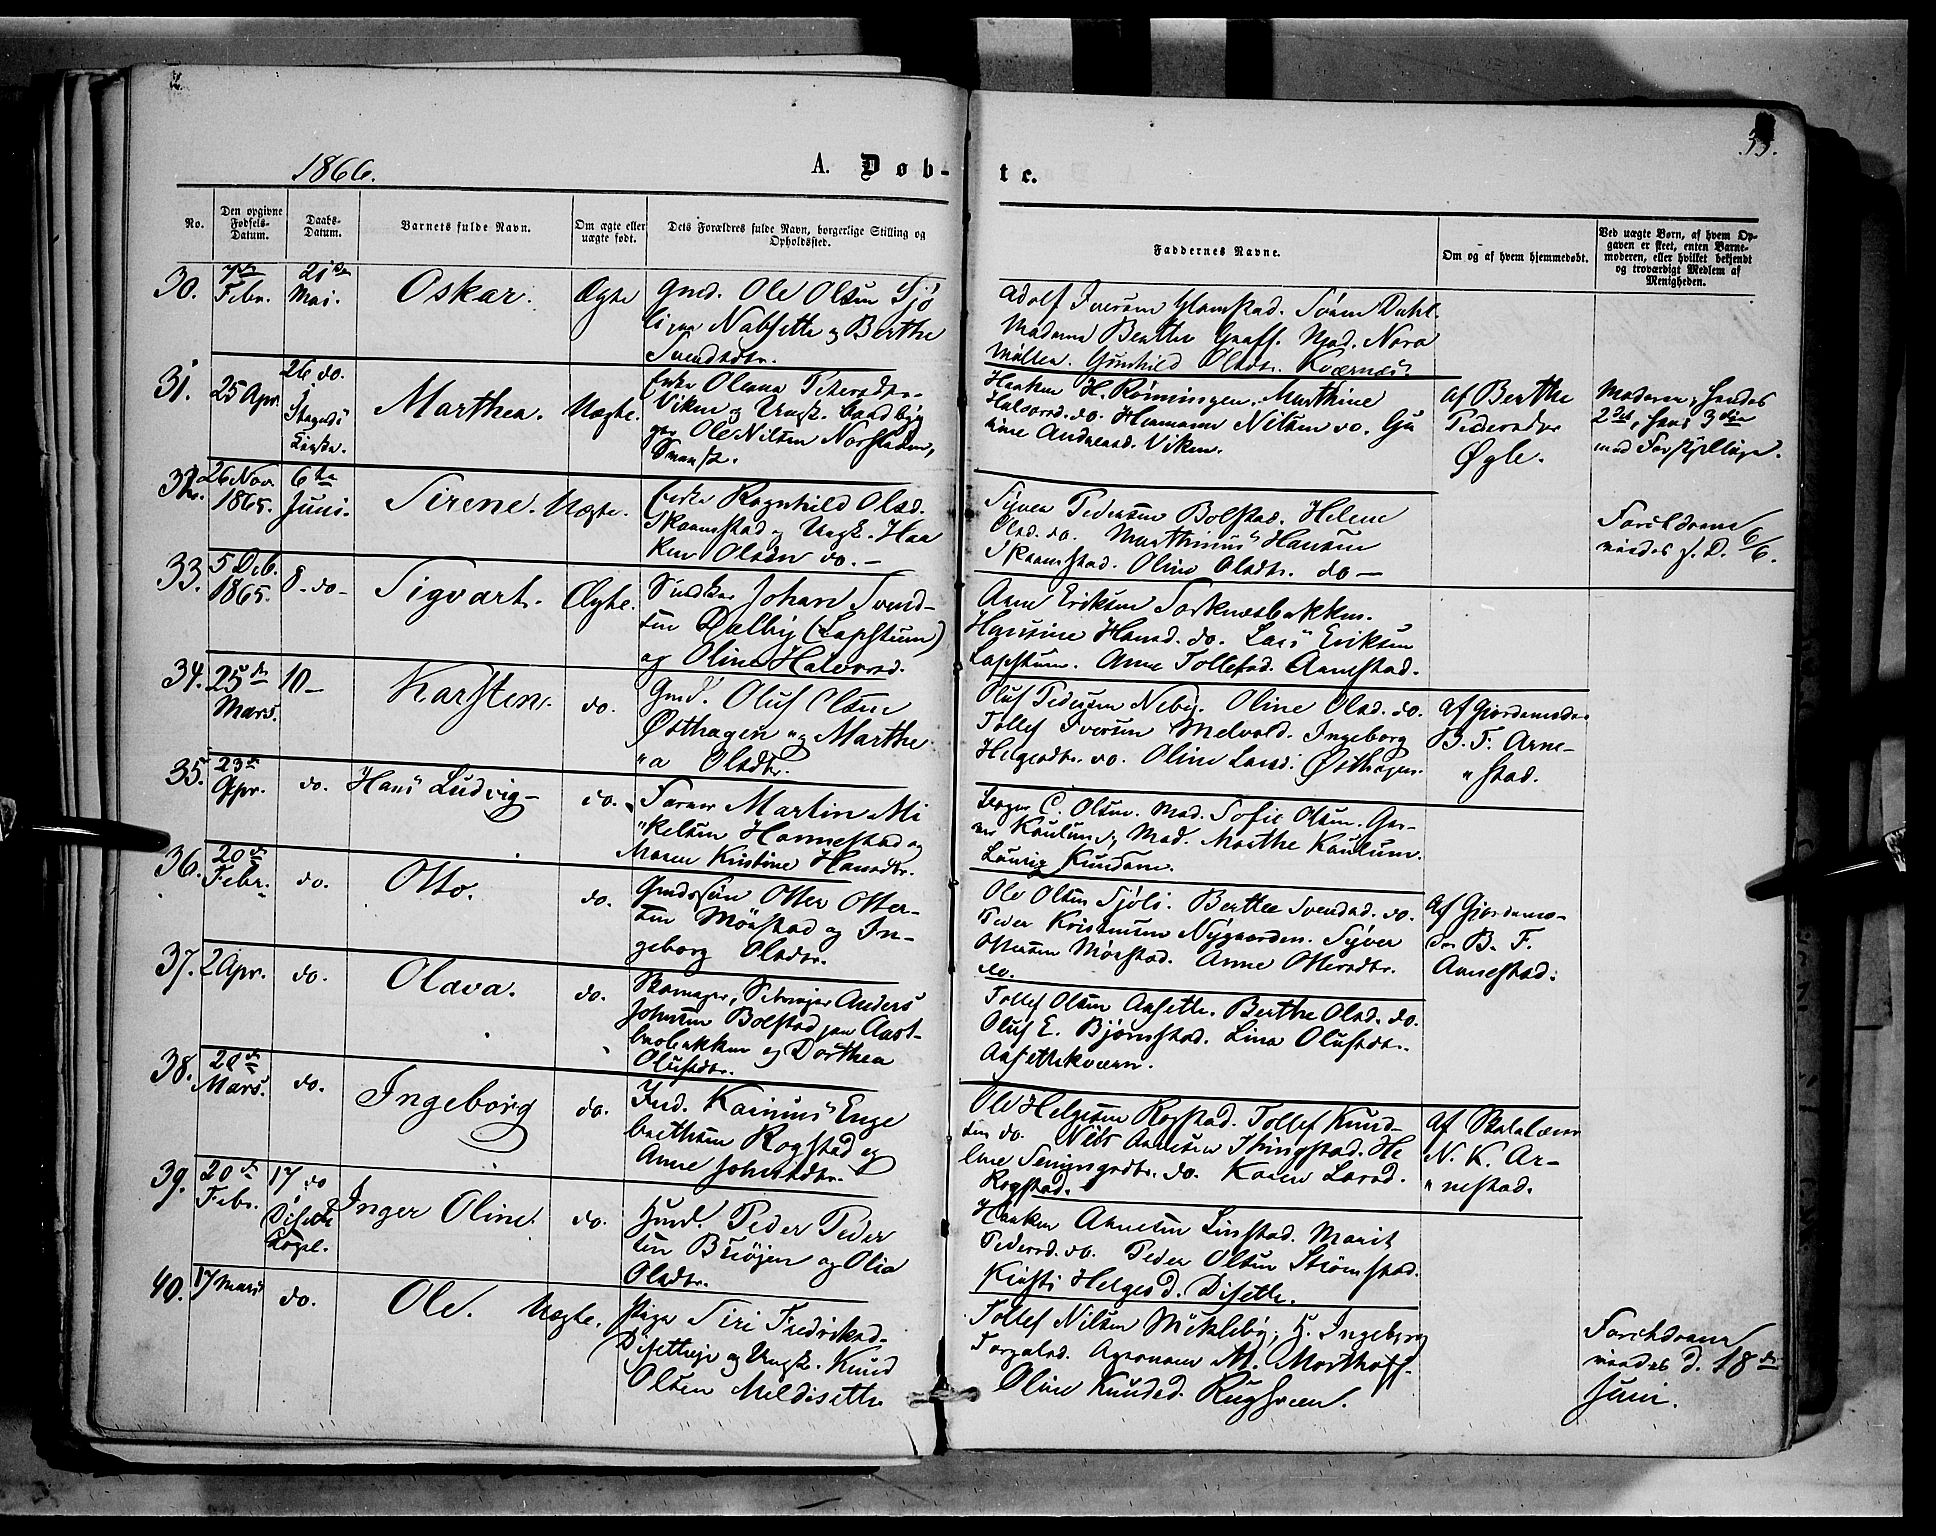 1866.
A. Døb-
te.
No.
Den opgivne Fødsels-Datum.
Daabs-Datum.
Barnets fulde Navn.
Om ægte eller uægte født.
Dets Forældres fulde Navn, borgerlige Stilling og Opholdssted.
Faddernes Navne.
Om og af hvem hjemmedøbt.
Ved uægte Børn, af hvem Op-
gaven er skeet, enten Barne-
moderen, eller hvilket bekjendt
og troværdigt Medlem af
Menigheden.
30. Febr. 21 Mai. Oskar. Ægte
Gmd. Ole Olsen Sjø
li paa Nabsette og Berthe
Svendsdtr.
Adolf Iversen Glomstad. Søren Dahl.
Madame Berthe Graff. Mad. Nora
Møller. Gunhild Olsdtr. Kværnes.
31. 25 Apr. 26 do. Marthea. Uægte.
Enke Oleana Pedersdtr.
Viken og Ungk. Landbyg
ger Ole Nilsen Norstuen,
Haaken H. Rønningen. Marthine
Halvorsd. do. Hermann Nilsen do.
Andreasd. Viken.
af Berthe
Pedersdtr
Øgle.
Moderen, hendes
2det, hans 3die
med Forskjellige.
32. 26 Nov. 1865. 6te Juni. Sirene. Uægte.
Enke Ragnhild Olsd.
Skramstad og Ungk. Haa
ken Olsen do. -
Syver Pedersen Bolstad. Helene
Olsd. do. Marthinus Hansen
Skramstad. Oline Olsdtr. do -
Forældrene
6/6.
33. 5 Deb. 1865. 8. do - Sigvart. Ægte.
Johan Svend-
sen Dælby (Lapstuen)
og Oline Halvorsd.
Arne Eriksen Torknæsbakken.
Hansine Hansd. do. Lars Eriksen
Lapstuen. Anne Tollefsd. Arnestad.
34. 25de Mars. 10 - Karsten. do.
Gmd. Oluf Olsen
Østhagen og Marthe
"a Olsdtr.
Oluf Pedersen Neby. Oline Olsd. do.
Tollef Iversen Melvold. Ingeborg
Helgesdtr. do. Oline Larsd. Østhagen.
Af Gjordemoder
B. F. Arne-
"stad.
35. 23de Apr. do. Hans Ludvig - do.
Farver Martin Mi
"kelsen Hannestad og
Maren Kristine Hansdtr.
C. Olsen. Mad. Sofie Olsen. Gar-
ver Kaulum, Mad. Marthe Kaulum.
36. 20de Febr. do. Otto. do.
Gmdssøn Otter Otter-
sen Mørstad og In-
geborg Olsdtr.
Ole Olsen Sjøli. Berthe Svendsd. do.
Peder Kristensen Nygaarden. Syver
Ottersen Mørstad. Anne Ottersdtr.
do.
Af Gjordemo-
der B. F.
Arnestad.
37. 2 Apr. do. Olava. do.
Skomager, Anders
Johnsen Bolstad paa Aast-
brobakken og Dorthea
Olufsdtr.
Tollef Olsen Aasette. Berthe Olsd. do.
Oluf E. Bjørnstad. Lina Olufsdtr.
Aasettekværn.
38. 20de Mars. do. Ingeborg do.
Ind. Karinus Enge
brethsen Rogstad og
Anne Johnsdtr.
Ole Helgesen Rogstad. Tollef Knud-
sen do. Nils Arnesen Thingstad. He
lene Semingsdtr. do. Karen Larsd.
Rogstad.
Af Skolelærer
N. K. Ar-
"nestad.
39. 20de Febr. 17 do Disette Kapel. Inger Oline. do.
Huusm. Peder Peder
sen Brøjen og Olia
Olsdtr.
Haaken Arnesen Linstad. Marit
Pedersd. do. Peder Olsen Strømstad.
Kirsti Helgesd. Disette.
40. 17 Mars do. Ole. Uægte.
Pige Siri Fredriksd.
Disetteje og Ungk. Knud
Olsen Meldisette
Tollef Nilsen Mykleby, H. Ingeborg
Torgalsd. Agronom M. Morthoff.
Oline Knudsd. Rugsveen.
Forældrene
d. 18de
Juni.